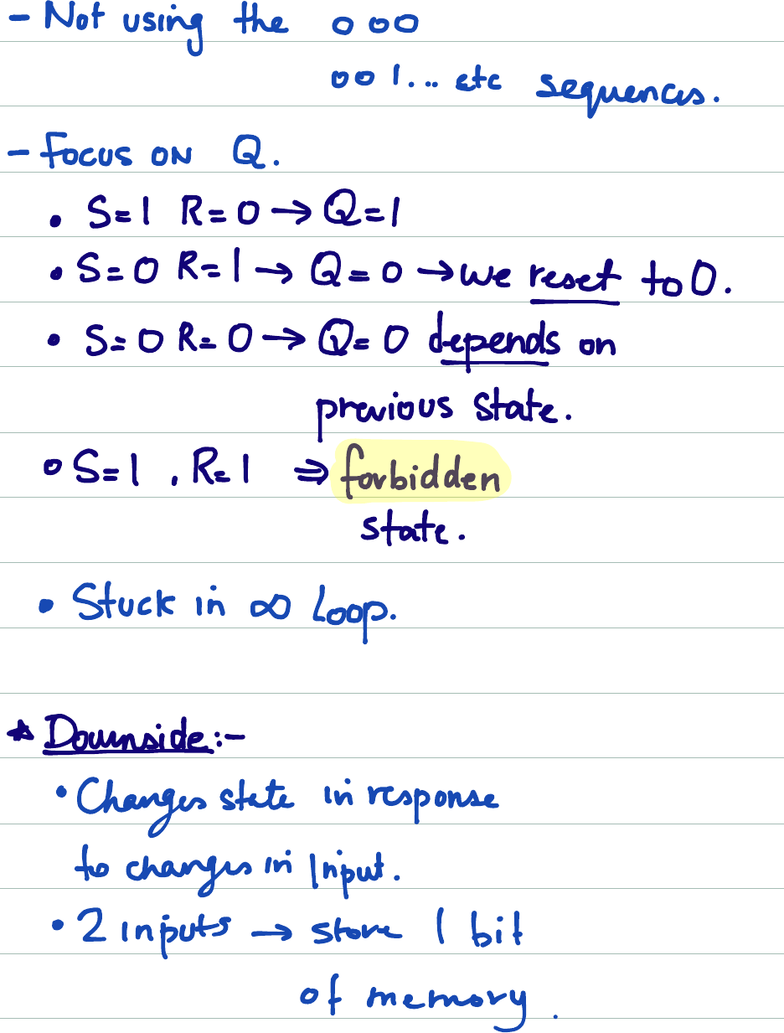 - Not using the 000
001... etc sequences.
- Focus on Q.
• S=1 R=0 → Q=1
• S=0 R=1 → Q=0 → we reset to 0.
• S=0 R=0 → Q=0 depends on
previous state.
• S=1, R=1 ⇒ forbidden
state.
• Stuck in ∞ Loop.
* Downside:-
• Changes state in response
to changes in Input.
• 2 inputs → store 1 bit
of memory.